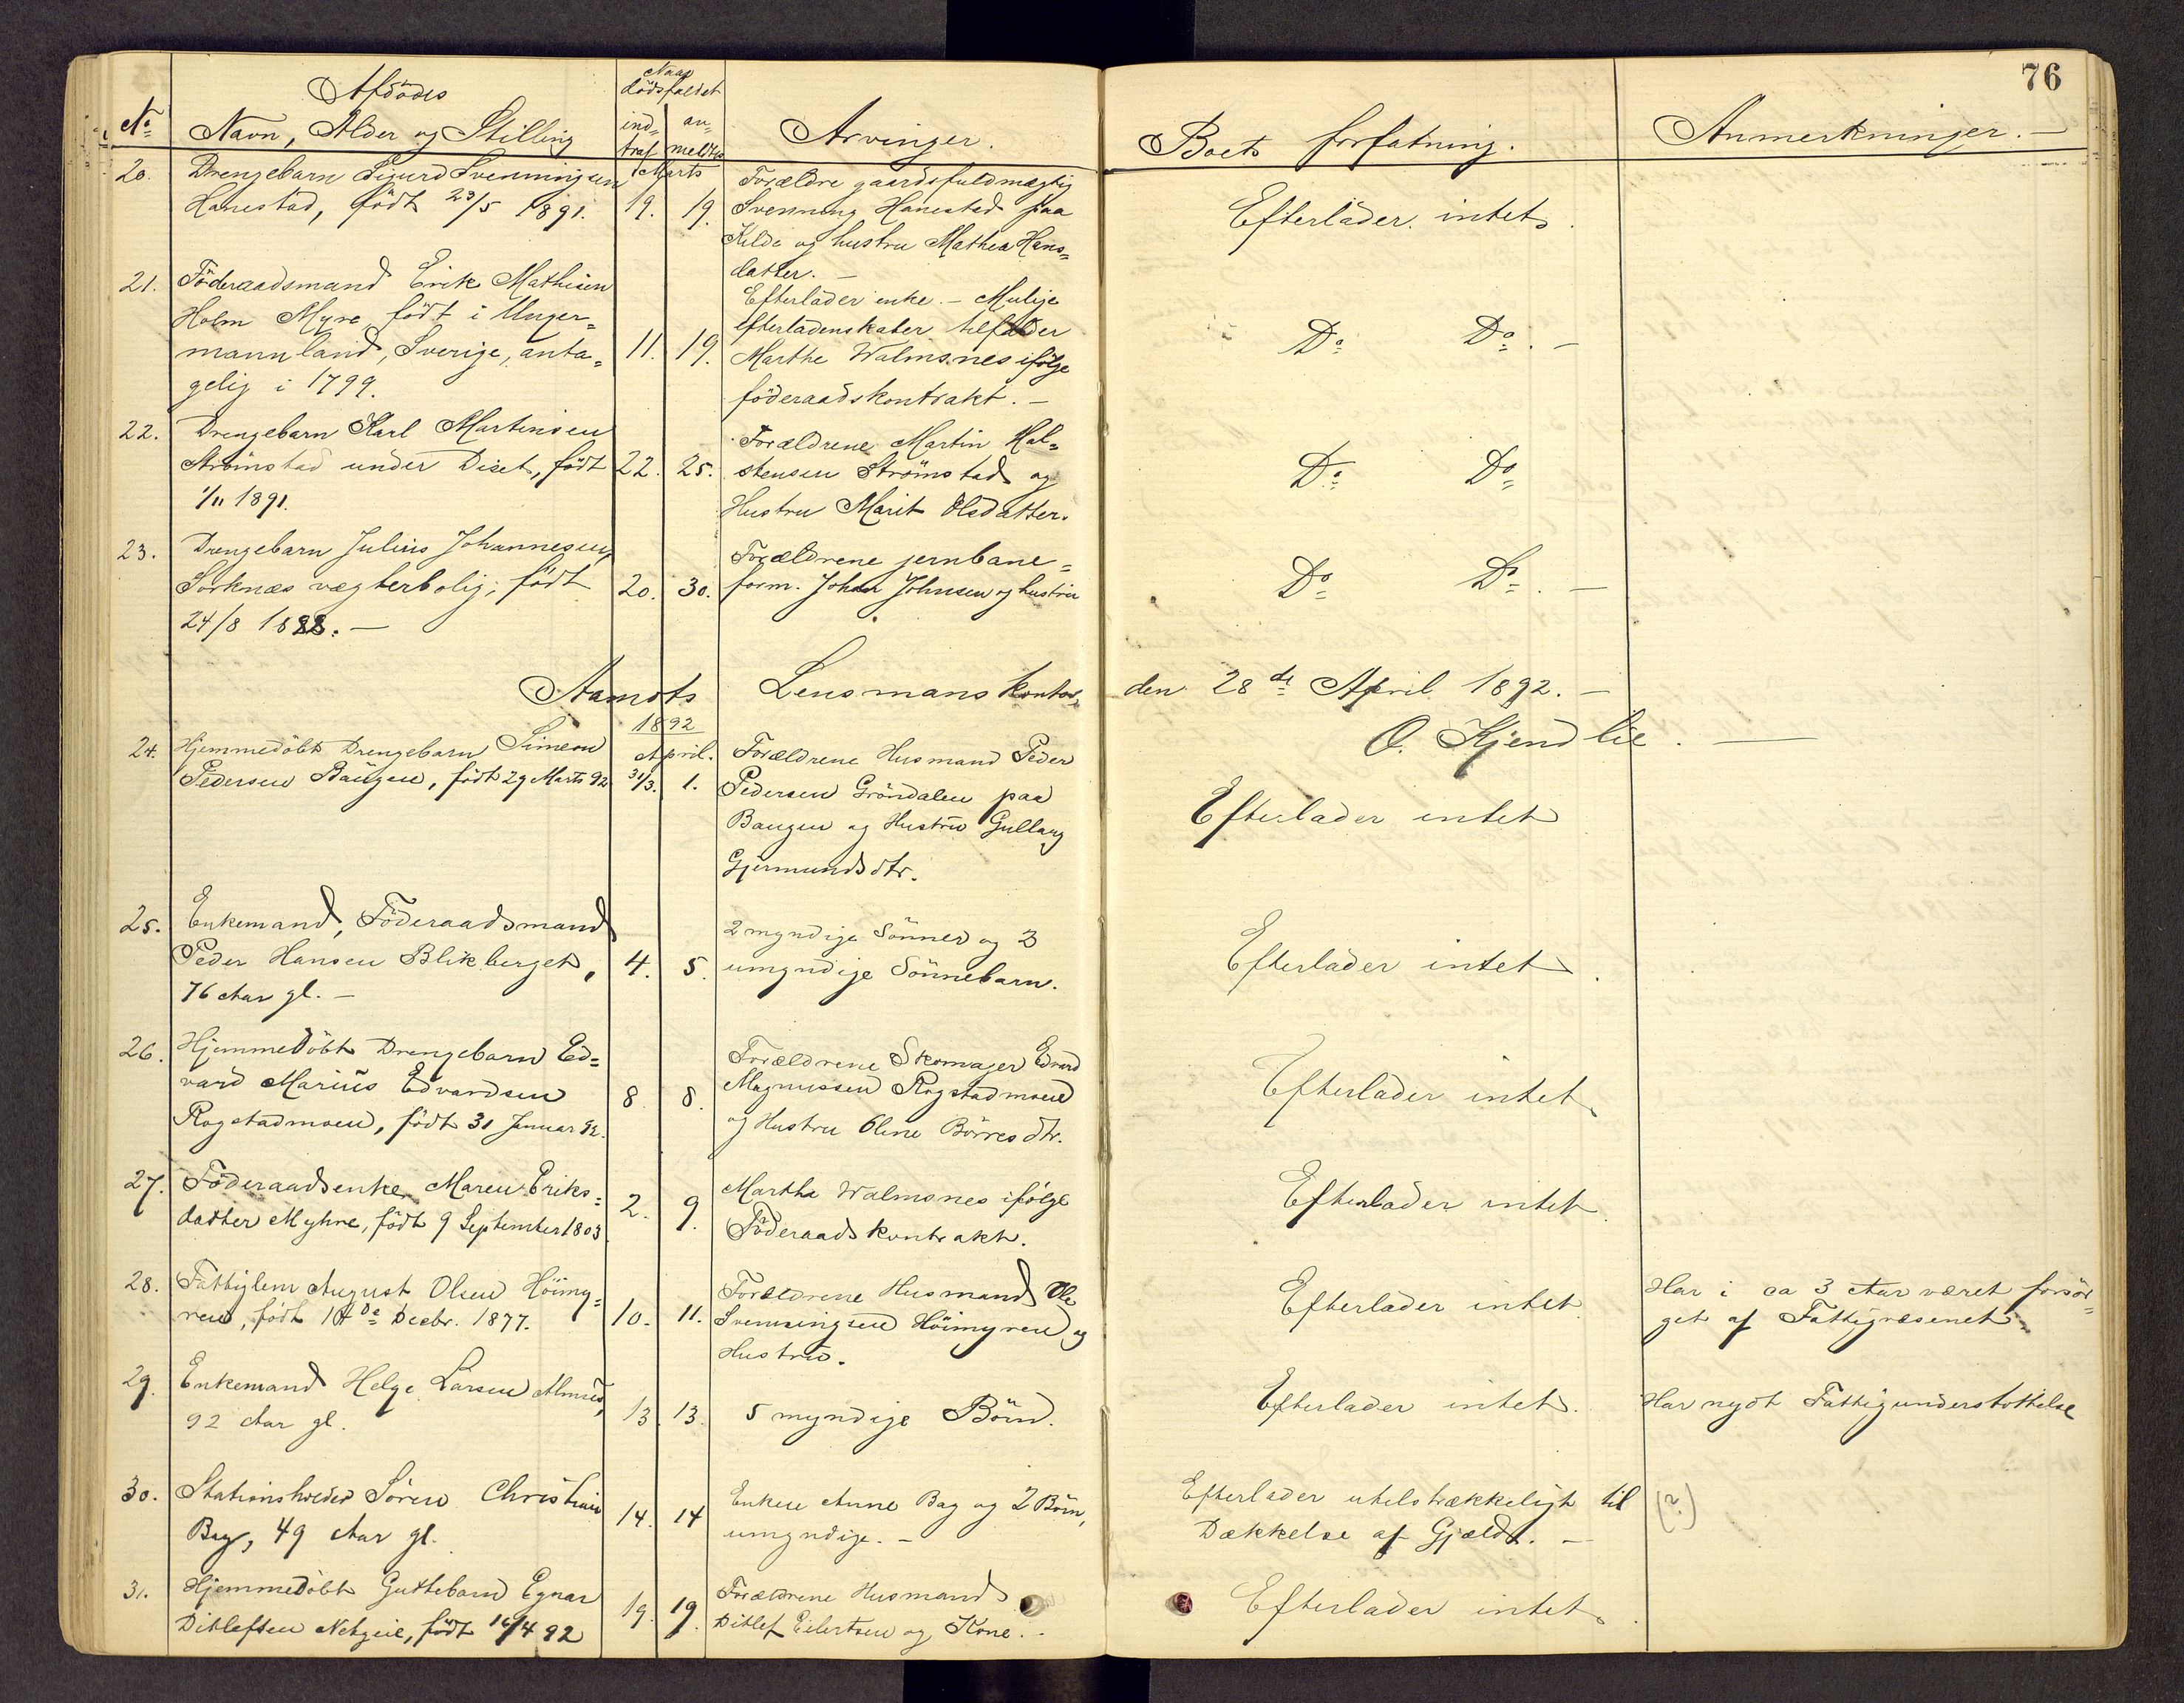 76
Afdødes
Navn, Alder og Stilling
No
Naar dødsfaldet
ind-traf
an-meldtes
Arvinger.
Boets forfatning.
Anmerkninger. —
Marts
20. Drengebarn Sigurd Svenningsen
Hanestad, født 23/5 1891.
19. 19.
Forældre gaardsfuldmægtig
Svenning Hanestad paa
Kilde og hustru Mathea Hans=
datter. —
Efterlader intet.
21. Föderaadsmand Erik Mathisen
Holm Myre født i Unger=
mannland, Sverige, anta=
gelig i 1799.
11. 19.
Efterlader enke. — Mulige
efterladenskaber tilfalder
Marthe Walmsnes ifølge
föderaadskontrakt. —
Do Do. —
22. Drengebarn Karl Martinsen
Strömstad under Diset, født
1/11 1891.
22. 25.
Forældrene Martin Hal=
stensen Strömstad og
Hustru Marit Olsdatter.
Do Do
23. Drengebarn Julius Johannesen
Sorknæs vægterbolig, født
24/8 1888. —
20. 30.
Forældrene jernbane=
form. Johan Johnsen og hustru
Do Do. —
Aamots Lensmans kontor, den 28de April 1892. —
O. Kjendlie. —
1892
April.
24. Hjemmedöbt Drengebarn Simeon
Pedersen Bangen, født 29 Marts 92
31/3. 1.
Forældrene Husmand Peder
Pedersen Gröndalen paa
Bangen og Hustru Gullaug
Gjermundsdtr.
Efterlader intet
25. Enkemand, Föderaadsmand
Peder Hansen Blikberget,
76 Aar gl. —
4. 5.
2 myndige Sönner og 3
umyndige Sönnebarn.
Efterlader intet.
26. Hjemmedöbt Drengebarn Ed=
vard Marius Edvardsen
Rogstadmoen, født 31 Januar 92.
8 8.
Forældrene Skomager Edvard
Magnussen Rogstadmoen
og Hustru Oline Börresdtr.
Efterlader intet.
27. Föderaadsenke Maren Eriks=
datter Myhre, født 9 September 1803
2. 9.
Marthe Walmsnes ifölge
Föderaadskontrakt.
Efterlader intet.
28. Fattiglem August Olsen Höimy=
ren, født 14de Decbr. 1877.
10. 11.
Forældrene Husmand Ole
Svenningsen Höimyren og
Hustru.
Efterlader intet
Har i ca 3 Aar været forsör=
get af Fattigvæsenet.
29. Enkemand Helge Larsen
92 Aar gl.
13. 13.
5 myndige Börn.
Efterlader intet.
Har nydt Fattigunderstöttelse
30. Stationsholder Sören Christian
Bag, 49 Aar gl.
14. 14
Enken Anne Bag og 2 Börn,
umyndige. —
Efterlader utilstrækkeligt til
Dækkelse af Gjæld. —
(?)
31. Hjemmedöbt Guttebarn Egnar
Ditlefsen født 16/4 92
19. 19.
Forældrene Husmand
Ditlef Eilertsen og Kone. —
Efterlader intet.